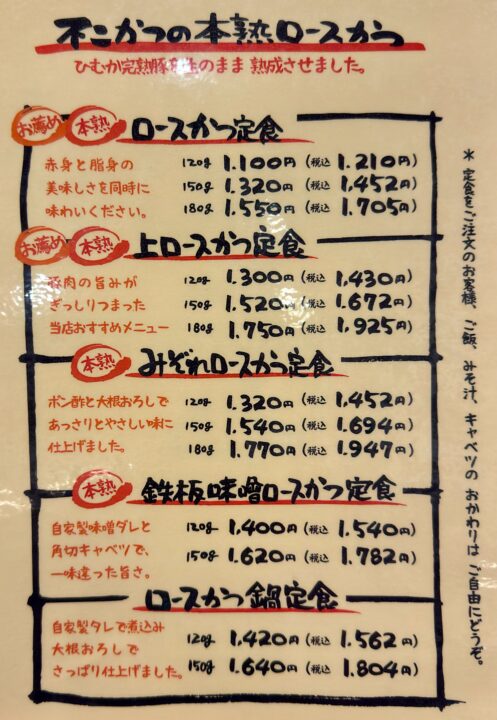 不二かつの本熟ロースかつ
ひむか完熟豚を生のまま 熟成させました。
お薦め 本熟 ロースかつ定食
赤身と脂身の 120g 1.100円 (税込 1.210円)
美味しさを同時に 150g 1.320円 (税込 1.452円)
味わいください。 180g 1.550円 (税込 1.705円)
お薦め 本熟 上ロースかつ定食
豚肉の旨みが 120g 1.300円 (税込 1,430円)
ぎっしりつまった 150g 1.520円 (税込 1.672円)
当店おすすめメニュー 180g 1.750円 (税込 1,925円)
本熟 みぞれロースかつ定食
ポン酢と大根おろしで 120g 1.320円 (税込 1.452円)
あっさりとやさしい味に 150g 1.540円 (税込 1.694円)
仕上げました。 180g 1.770円 (税込 1.947円)
本熟 鉄板味噌ロースかつ定食
自家製味噌ダレと 120g 1,400円 (税込 1.540円)
角切キャベツで、 150g 1.620円 (税込 1.782円)
一味違った旨さ。
ロースかつ鍋定食
自家製タレで煮込み
大根おろしで 120g 1.420円 (税込 1.562円)
さっぱり仕上げました。 150g 1.640円 (税込 1.804円)
＊定食をご注文のお客様、ご飯、みそ汁、キャベツの おかわりは ご自由にどうぞ。